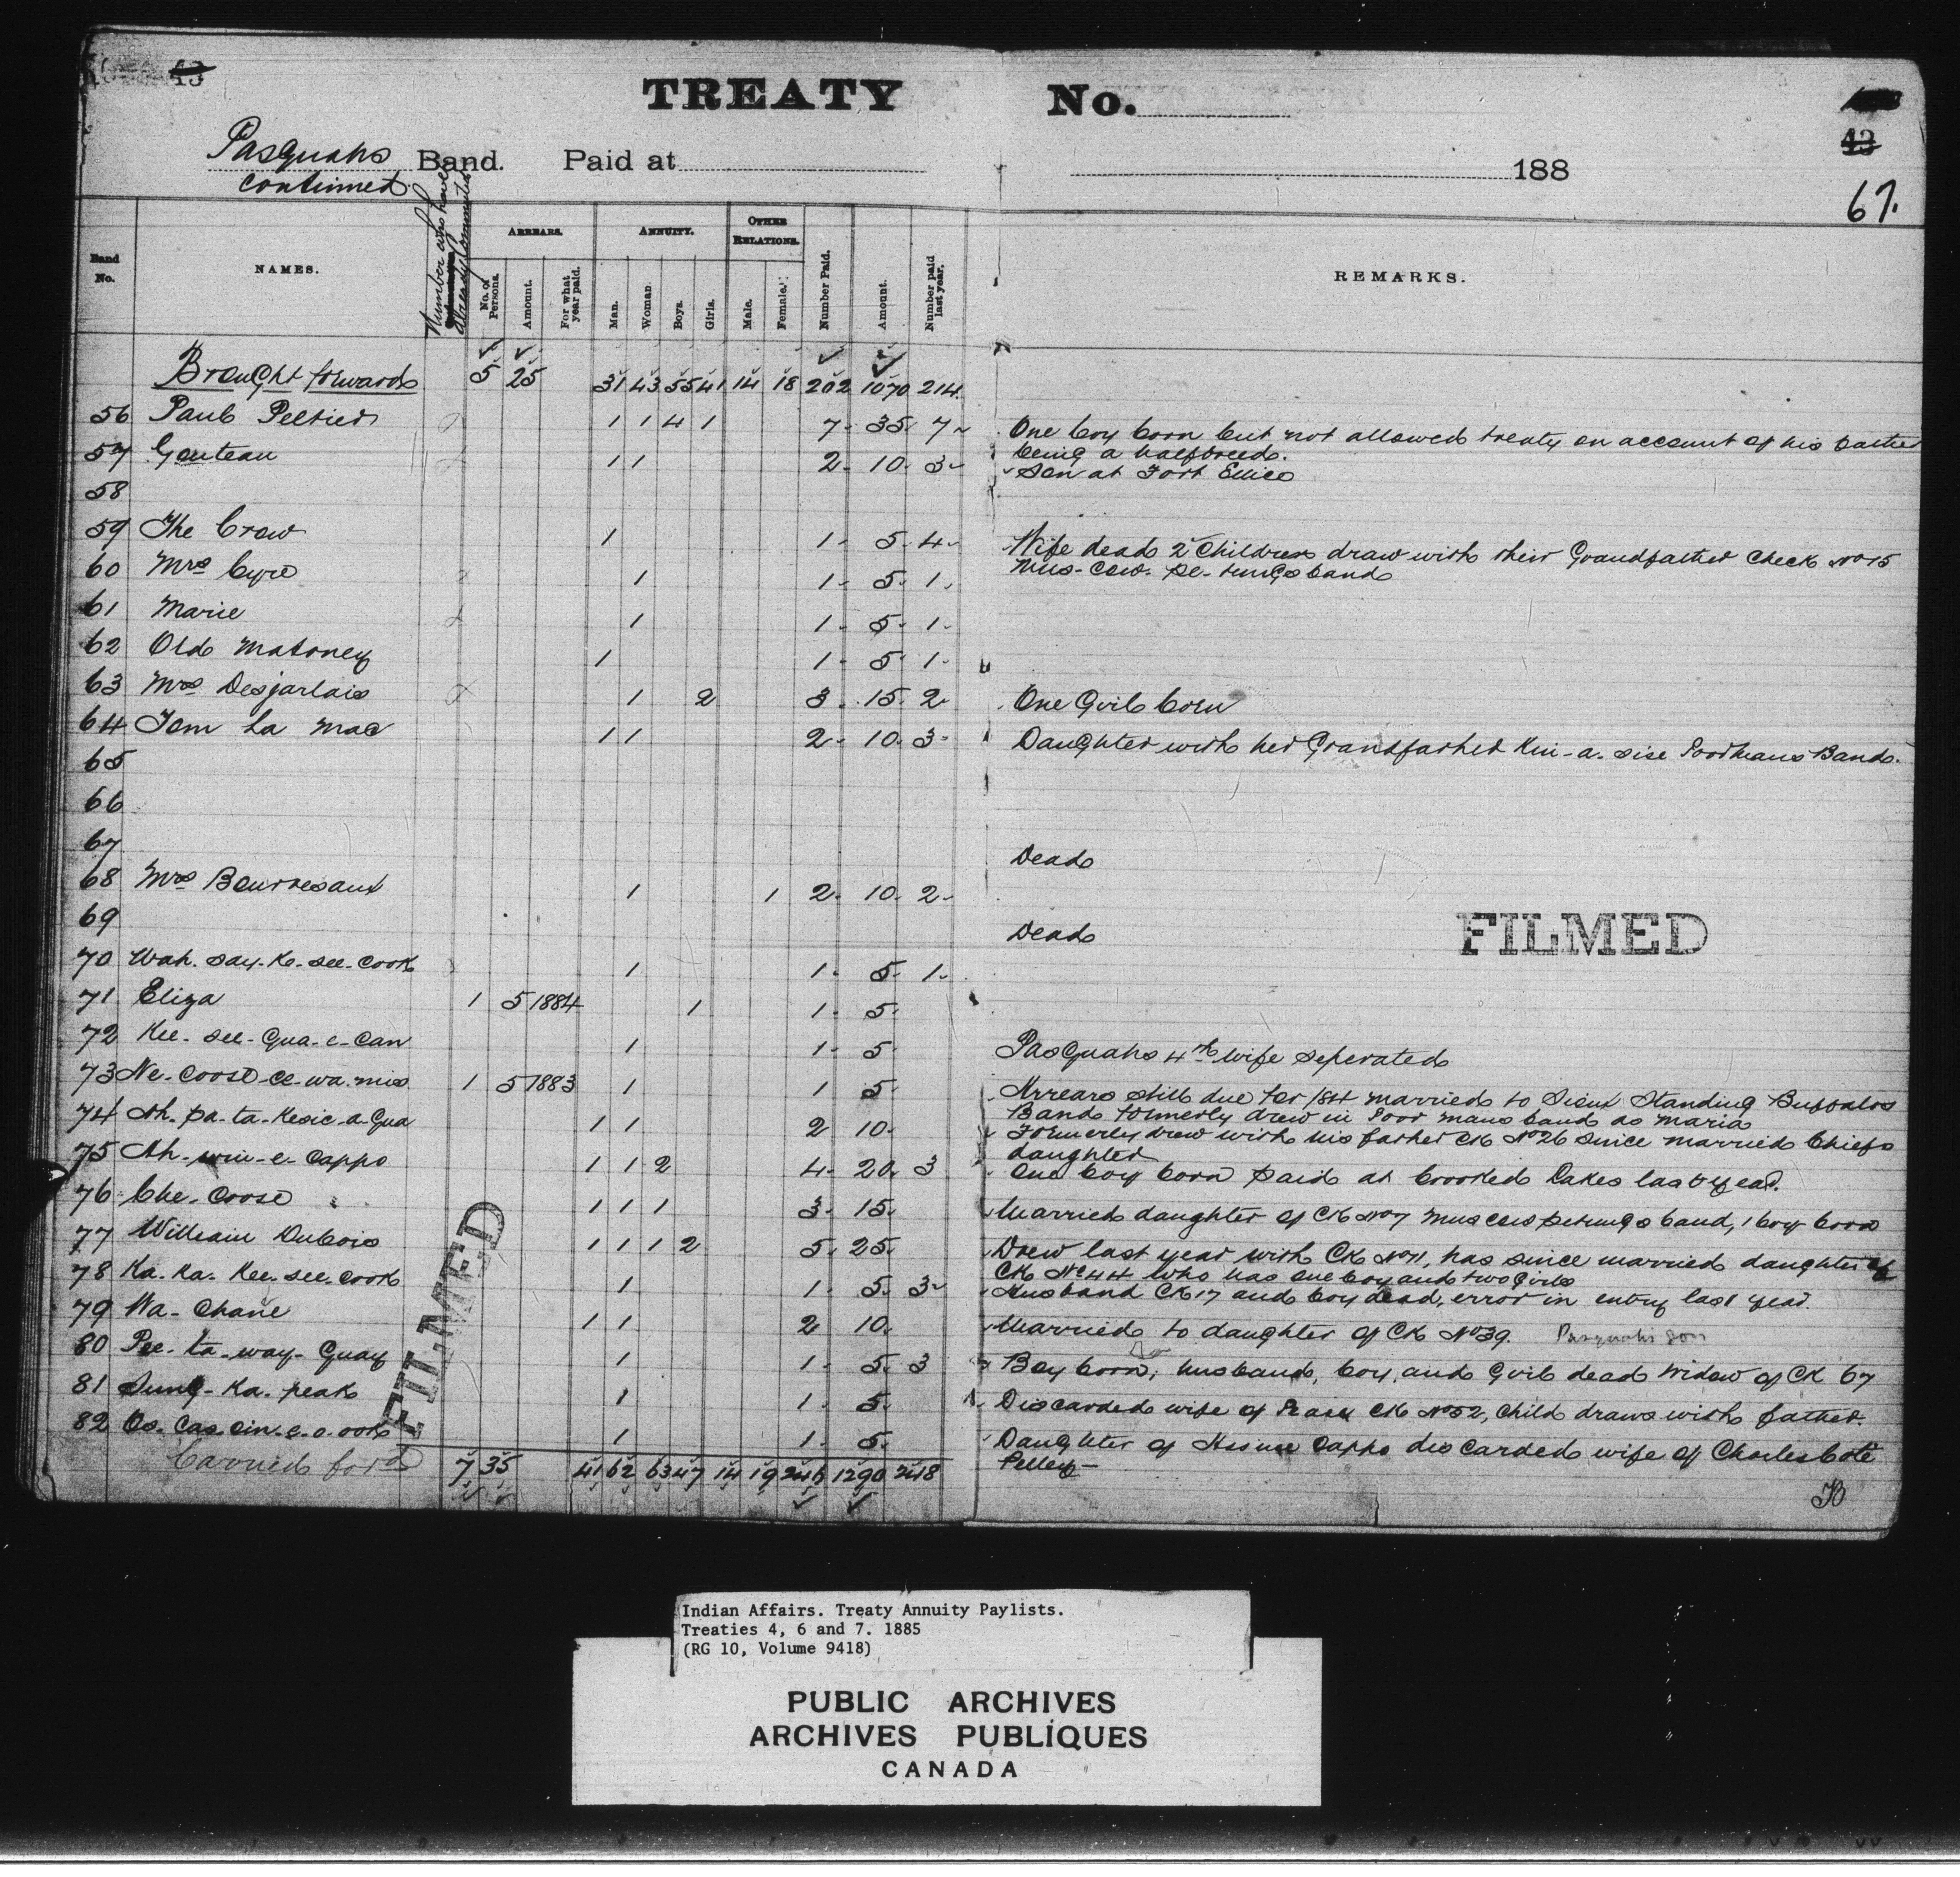 43
TREATY No.
43
67.
Pasquahs Band. Paid at 188
continued
Number who have already Commuted
Band No. NAMES. ARREARS. ANNUITY. OTHER RELATIONS. Number Paid. Amount. Number paid last year. REMARKS.
No. of Persons. Amount. For what year paid. Man. Woman. Boys. Girls. Male. Female.
Brought forward 5 25 31 43 55 41 14 18 202 1070 214
56 Paul Peltier 1 1 4 1 7 35 7 One boy born but not allowed treaty on account of his father
being a halfbreed.
57 Gouteau 1 1 2 10 3 Son at Fort Ellice
58
59 The Crow 1 1 5 4 Wife dead 2 Children draw with their Grandfather Check No 15
Mus-cow-pe-tungs band
60 Mrs Cyre 1 1 5 1
61 Marie 1 1 5 1
62 Old Matoney 1 1 5 1
63 Mrs Desjarlais 1 2 3 15 2 One Girl born
64 Tom La Mac 1 1 2 10 3 Daughter with her Grandfather Kin-a-sise Poormans Band.
65
66
67 Dead
68 Mrs Bourresaux 1 1 2 10 2
69 Dead
FILMED
70 Wah-say-ke-see-cook 1 1 5 1
71 Eliza 1 5 1884 1 1 5
72 Kee-see-Qua-c-can 1 1 5 Pasquahs 4th wife seperated
73 Ne-coose-ce-wa-mis 1 5 1883 1 1 5 Arrears still due for /84 married to Sioux Standing Buffalos
Band formerly drew in Poor mans band as Maria
74 Ah-pa-ta-kesic-a-Qua 1 1 2 10 Formerly drew with his father CK No 26 since married Chiefs
daughter
75 Ah-win-e-cappo 1 1 2 4 20 3 One boy born paid at Crooked Lakes last year.
76 Che-coose 1 1 1 3 15 Married daughter of CK No 7 Muscowpetungs band, 1 boy born
77 William Dubois 1 1 1 2 5 25 Drew last year with CK No 11, has since married daughter of
CK No 44 who has one boy and two girls
78 Ka-Ka-Kee-see-cook 1 1 5 3 Husband CK 17 and boy dead, error in entry last year.
79 Wa-Chane 1 1 2 10 Married to daughter of CK No 39. Pasquahs son
80 Pee-ta-way-Quay 1 1 5 3 Boy born; husband, boy, and Girl dead Widow of CK 67
81 Sung-ka-peak 1 1 5 Discarded wife of CK No 52, Child draws with father.
82 Os-cas-cin-e-o-ook 1 1 5 Daughter of cappo discarded wife of Charles Coté
Pelley
FILMED
Carried ford 7 35 41 62 63 47 14 19 246 1290 248
Indian Affairs. Treaty Annuity Paylists.
Treaties 4, 6 and 7. 1885
(RG 10, Volume 9418)
PUBLIC ARCHIVES
ARCHIVES PUBLIQUES
CANADA